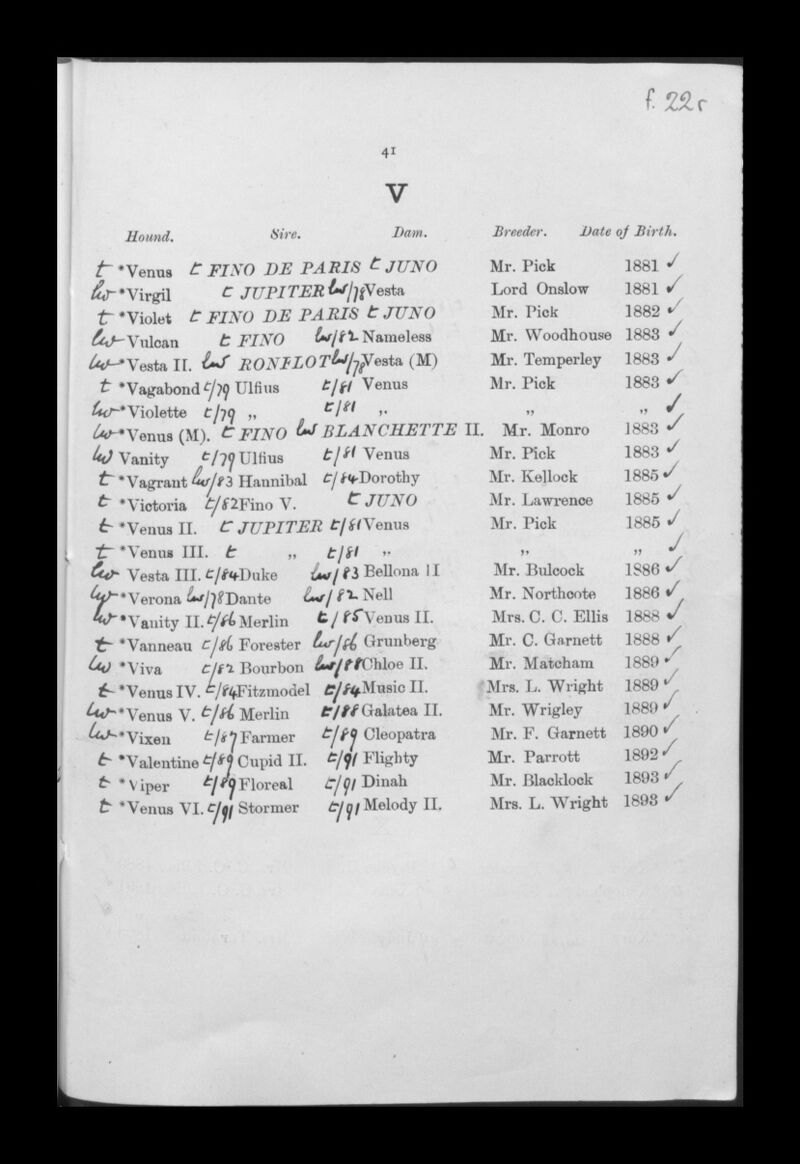 f. 22r
41
V
Hound. Sire. Dam. Breeder. Date of Birth.
t *Venus t FINO DE PARIS t JUNO Mr. Pick 1881 ✓
lw *Virgil t JUPITER lw/78 Vesta Lord Onslow 1881 ✓
t *Violet t FINO DE PARIS t JUNO Mr. Pick 1882 ✓
lw Vulcan t FINO lw/82 Nameless Mr. Woodhouse 1883 ✓
lw *Vesta II. lw RONFLOT lw/78 Vesta (M) Mr. Temperley 1883 ✓
t *Vagabond t/79 Ulfius t/81 Venus Mr. Pick 1883 ✓
lw *Violette t/79 „ t/81 „ „ „ ✓
lw *Venus (M). t FINO lw BLANCHETTE II. Mr. Monro 1883 ✓
lw Vanity t/79 Ulfius t/81 Venus Mr. Pick 1883 ✓
t *Vagrant lw/83 Hannibal t/84 Dorothy Mr. Kellock 1885 ✓
t *Victoria t/82 Fino V. t JUNO Mr. Lawrence 1885 ✓
t *Venus II. t JUPITER t/81 Venus Mr. Pick 1885 ✓
t *Venus III. t „ t/81 „ „ „ ✓
lw Vesta III. t/84 Duke lw/83 Bellona II Mr. Bulcock 1886 ✓
lw *Verona lw/78 Dante lw/82 Nell Mr. Northcote 1886 ✓
lw *Vanity II. t/86 Merlin t/85 Venus II. Mrs. C. C. Ellis 1888 ✓
t *Vanneau t/86 Forester lw/86 Grunberg Mr. C. Garnett 1888 ✓
lw *Viva t/82 Bourbon lw/88 Chloe II. Mr. Matcham 1889 ✓
t *Venus IV. t/84 Fitzmodel t/84 Music II. Mrs. L. Wright 1889 ✓
lw *Venus V. t/86 Merlin t/88 Galatea II. Mr. Wrigley 1889 ✓
lw *Vixen t/87 Farmer t/89 Cleopatra Mr. F. Garnett 1890 ✓
t *Valentine t/89 Cupid II. t/91 Flighty Mr. Parrott 1892 ✓
t *Viper t/89 Floreal t/91 Dinah Mr. Blacklock 1893 ✓
t *Venus VI. t/91 Stormer t/91 Melody II. Mrs. L. Wright 1893 ✓